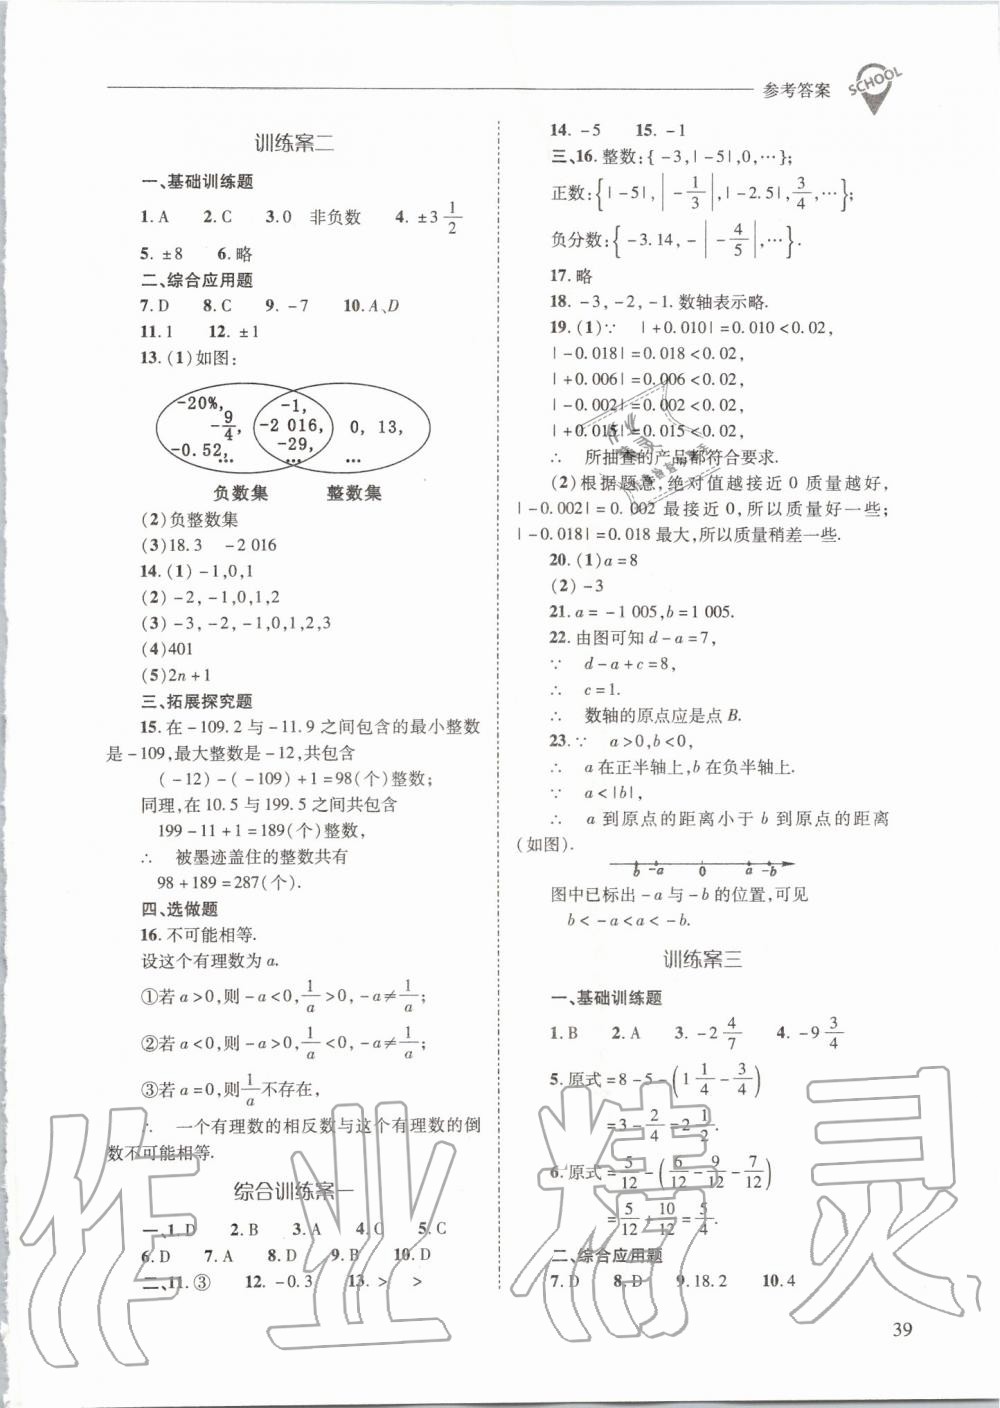 参考答案
SCHOOL
训练案二
一、基础训练题
1. A 2. C 3. 0 非负数 4. ±3 1/2
5. ±8 6. 略
二、综合应用题
7. D 8. C 9. -7 10. A、D
11. 1 12. ±1
13. (1)如图:
-20%, -1,
-9/4, -2 016, 0, 13,
-0.52, -29,
… … …
负数集 整数集
(2)负整数集
(3)18.3 -2 016
14. (1) -1,0,1
(2) -2, -1,0,1,2
(3) -3, -2, -1,0,1,2,3
(4)401
(5)2n+1
三、拓展探究题
15. 在 -109.2 与 -11.9 之间包含的最小整数
是 -109,最大整数是 -12,共包含
(-12)-(-109)+1=98(个)整数;
同理,在 10.5 与 199.5 之间共包含
199-11+1=189(个)整数,
∴ 被墨迹盖住的整数共有
98+189=287(个).
四、选做题
16. 不可能相等.
设这个有理数为 a.
①若 a>0,则 -a<0, 1/a>0, -a≠1/a;
②若 a<0,则 -a>0, 1/a<0, -a≠1/a;
③若 a=0,则 1/a 不存在,
∴ 一个有理数的相反数与这个有理数的倒
数不可能相等.
综合训练案一
一、1. D 2. B 3. A 4. C 5. C
6. D 7. A 8. D 9. B 10. D
二、11. ③ 12. -0.3 13. > >
14. -5 15. -1
三、16. 整数:{-3,|-5|,0,…};
正数:{|-5|,|-1/3|,|-2.5|,3/4,…};
负分数:{-3.14,-|-4/5|,…}.
17. 略
18. -3, -2, -1. 数轴表示略.
19. (1)∵ |+0.010|=0.010<0.02,
|-0.018|=0.018<0.02,
|+0.006|=0.006<0.02,
|-0.002|=0.002<0.02,
|+0.015|=0.015<0.02,
∴ 所抽查的产品都符合要求.
(2)根据题意,绝对值越接近 0 质量越好,
|-0.002|=0.002 最接近 0,所以质量好一些;
|-0.018|=0.018 最大,所以质量稍差一些.
20. (1)a=8
(2) -3
21. a=-1 005,b=1 005.
22. 由图可知 d-a=7,
∵ d-a+c=8,
∴ c=1.
∴ 数轴的原点应是点 B.
23. ∵ a>0,b<0,
∴ a 在正半轴上,b 在负半轴上.
∵ a<|b|,
∴ a 到原点的距离小于 b 到原点的距离
(如图).
b -a 0 a -b
图中已标出 -a 与 -b 的位置,可见
b<-a<a<-b.
训练案三
一、基础训练题
1. B 2. A 3. -2 4/7 4. -9 3/4
5. 原式=8-5-(1 1/4-3/4)
=3-2/4=2 1/2.
6. 原式=5/12-(6/12-9/12-7/12)
=5/12+10/12=5/4.
二、综合应用题
7. D 8. D 9. 18.2 10. 4
39
作业精灵